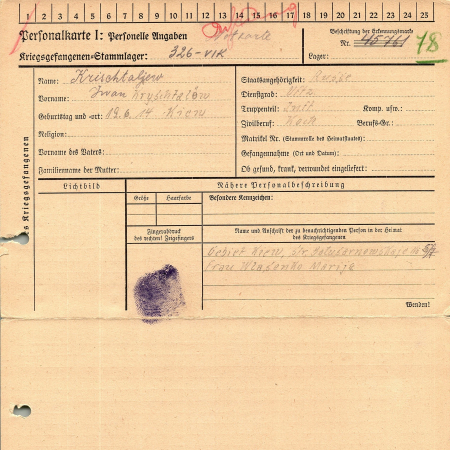 1 2 3 4 5 6 7 8 9 10 11 12 13 14 15 16 17 18 19 20 21 22 23 24 25
Personalkarte I: Personelle Angaben
Notkarte
Kriegsgefangenen-Stammlager: 326-VIK
Beschriftung der Erkennungsmarke
Nr. 45761 78
Lager:
des Kriegsgefangenen
Name: Krischtalzew
Vorname: Iwan
Geburtstag und -ort: 19.6.14 Kiew
Religion:
Vorname des Vaters:
Familienname der Mutter:
Staatsangehörigkeit: Russe
Dienstgrad:
Truppenteil: Inft Komp. usw.:
Zivilberuf: Koch Berufs-Gr.:
Matrikel Nr. (Stammrolle des Heimatstaates):
Gefangennahme (Ort und Datum):
Ob gesund, krank, verwundet eingeliefert:
Lichtbild
Nähere Personalbeschreibung
Größe Haarfarbe
Besondere Kennzeichen:
Fingerabdruck
des rechten! Zeigefingers
Name und Anschrift der zu benachrichtigenden Person in der Heimat
des Kriegsgefangenen
Gebiet Kiew,
Frau Marija
Wenden!